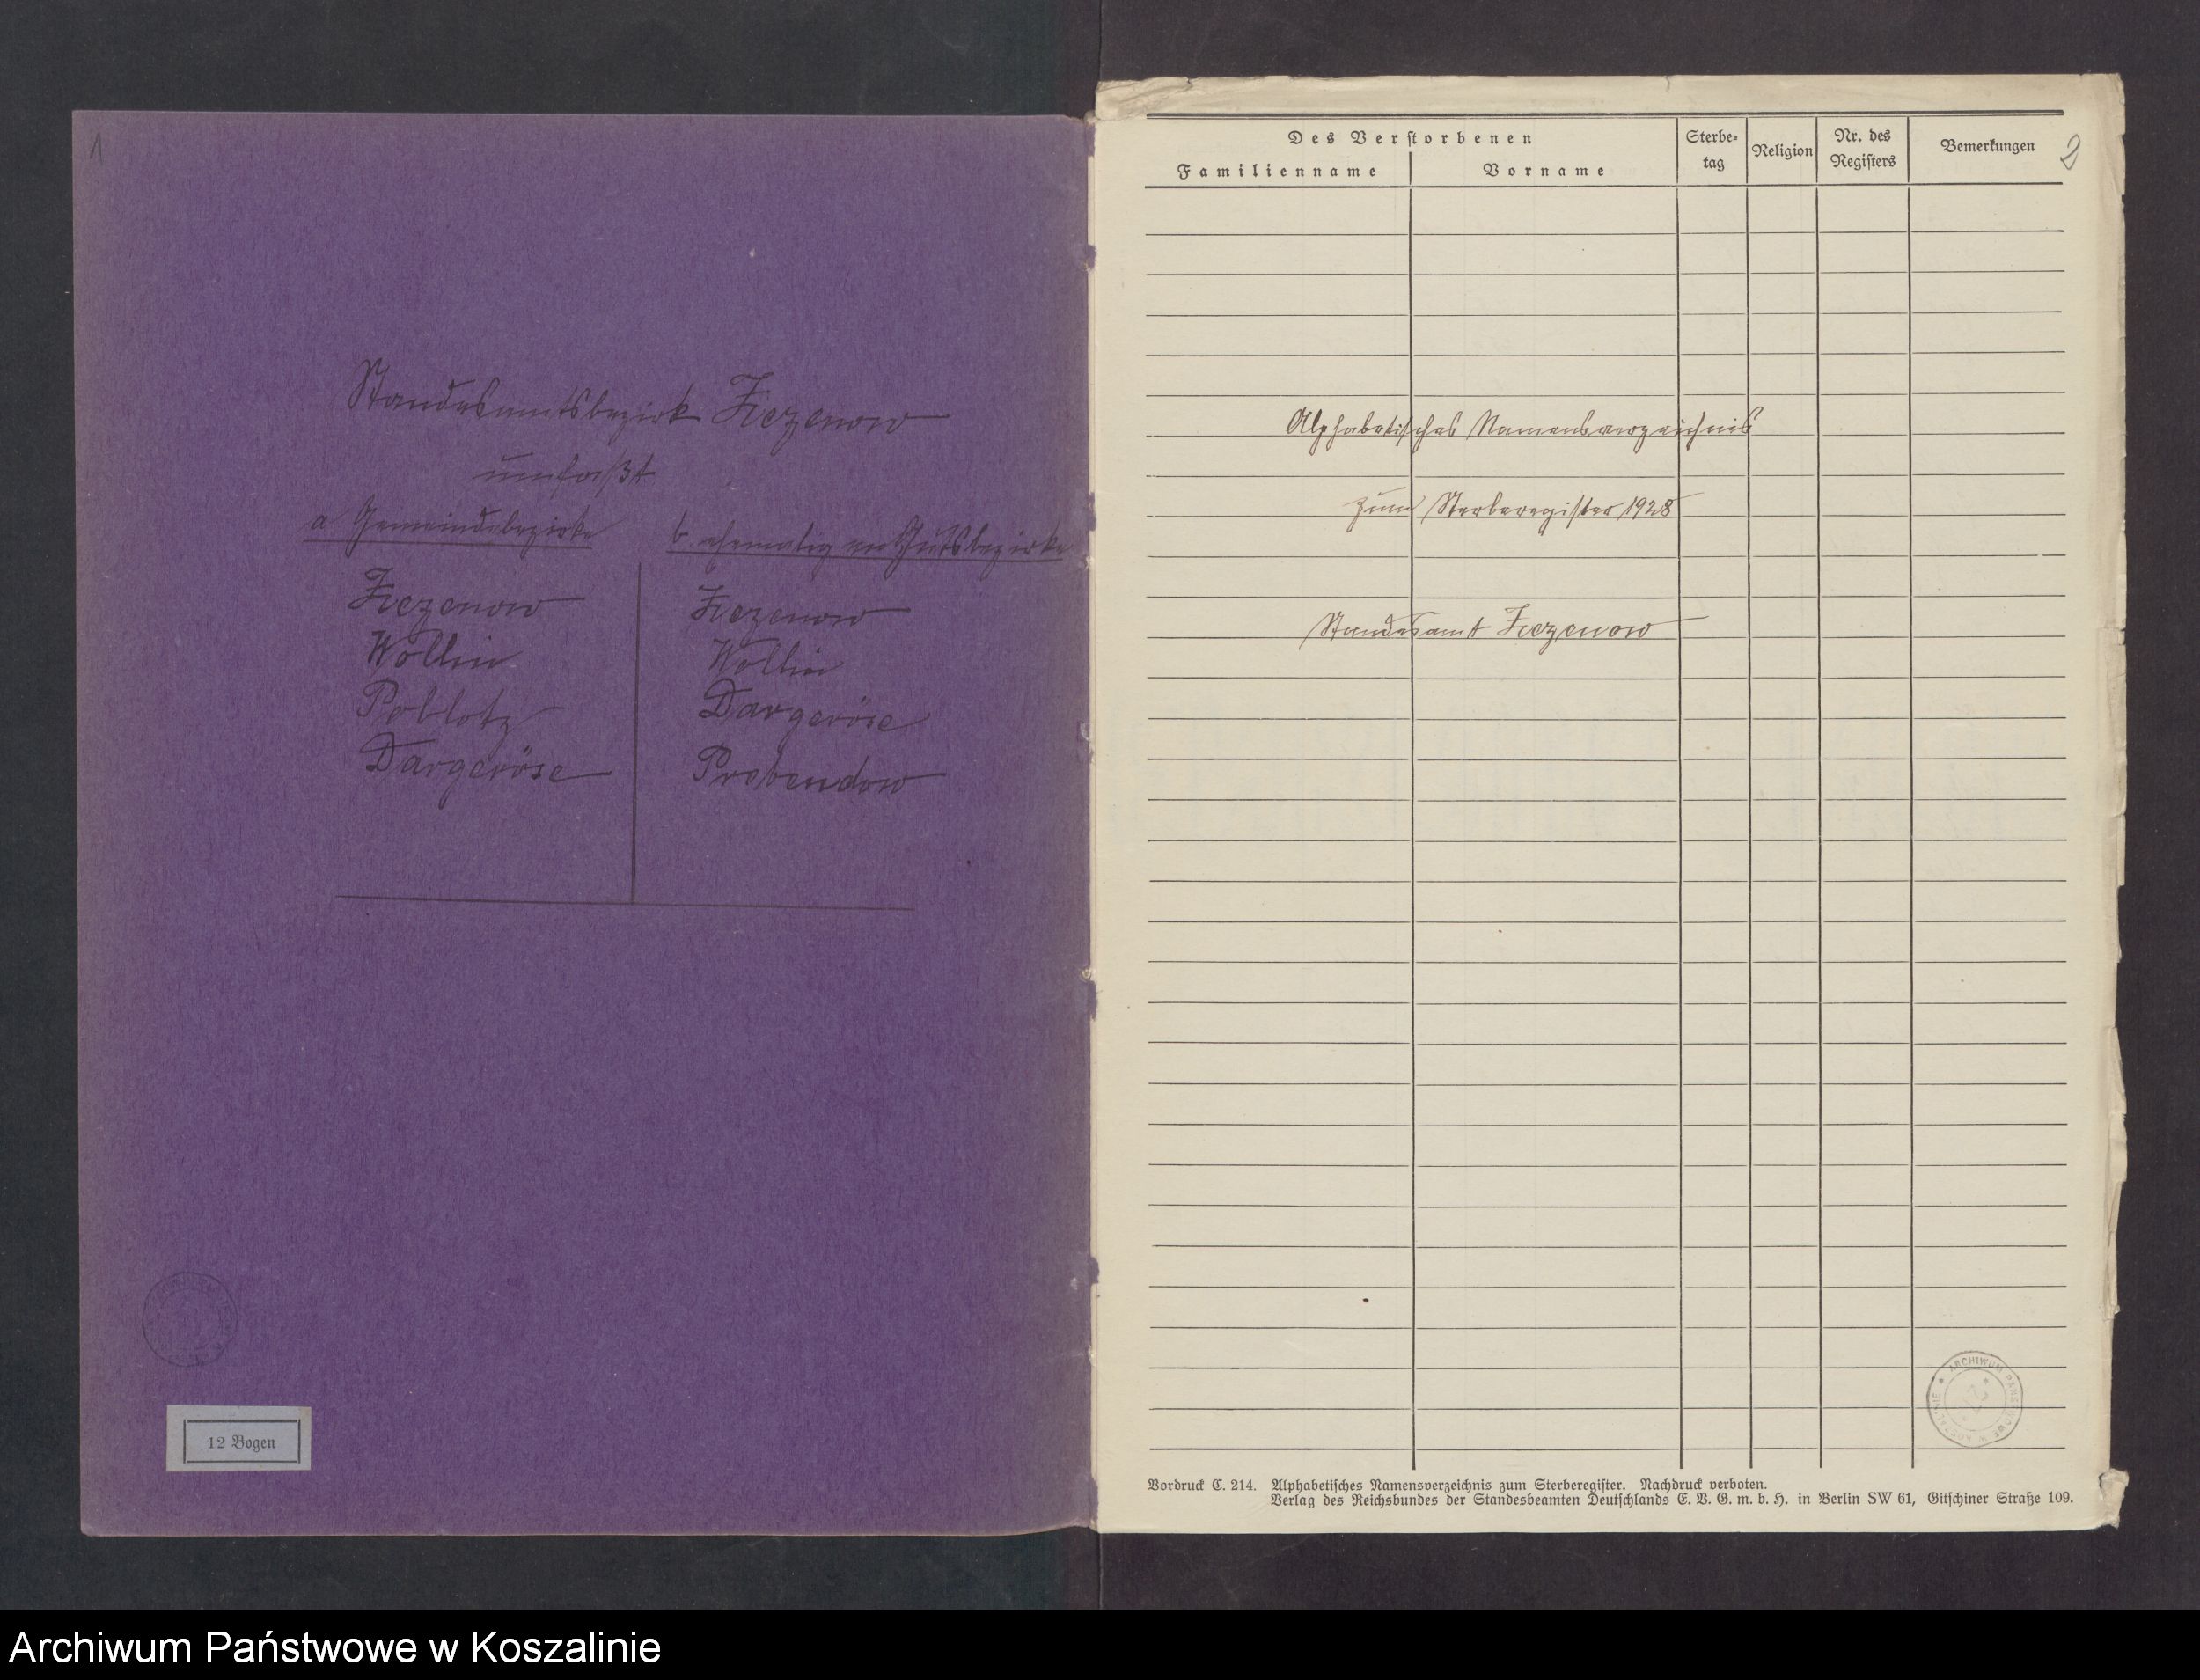 1
Standesamtsbezirk Zezenow
umfaßt
a Gemeindebezirke
Zezenow
Wollin
Poblotz
Dargeröse
b ehemaligen Gutsbezirke
Zezenow
Wollin
Dargeröse
Prebendow
12 Bogen
2
Des Verstorbenen
Familienname Vorname Sterbe-
tag Religion Nr. des
Registers Bemerkungen
Alphabetisches Namensverzeichnis
zum Sterberegister 1928
Standesamt Zezenow
ARCHIWUM PAŃSTWOWE W KOSZALINIE
Vordruck C. 214. Alphabetisches Namensverzeichnis zum Sterberegister. Nachdruck verboten.
Verlag des Reichsbundes der Standesbeamten Deutschlands E. V. G. m. b. H. in Berlin SW 61, Gitschiner Straße 109.
Archiwum Państwowe w Koszalinie